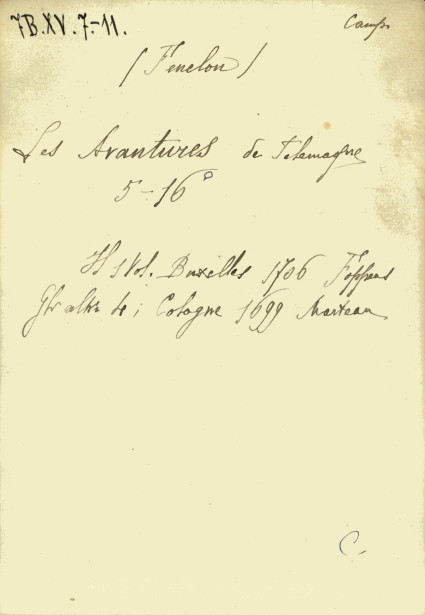 7B.XV.7-11.
(Fenelon)
Les Avantures de Telemaque
5-16°
Vol. Bruxelles 1706 Foppens
Cologne 1699 Marteau
C.